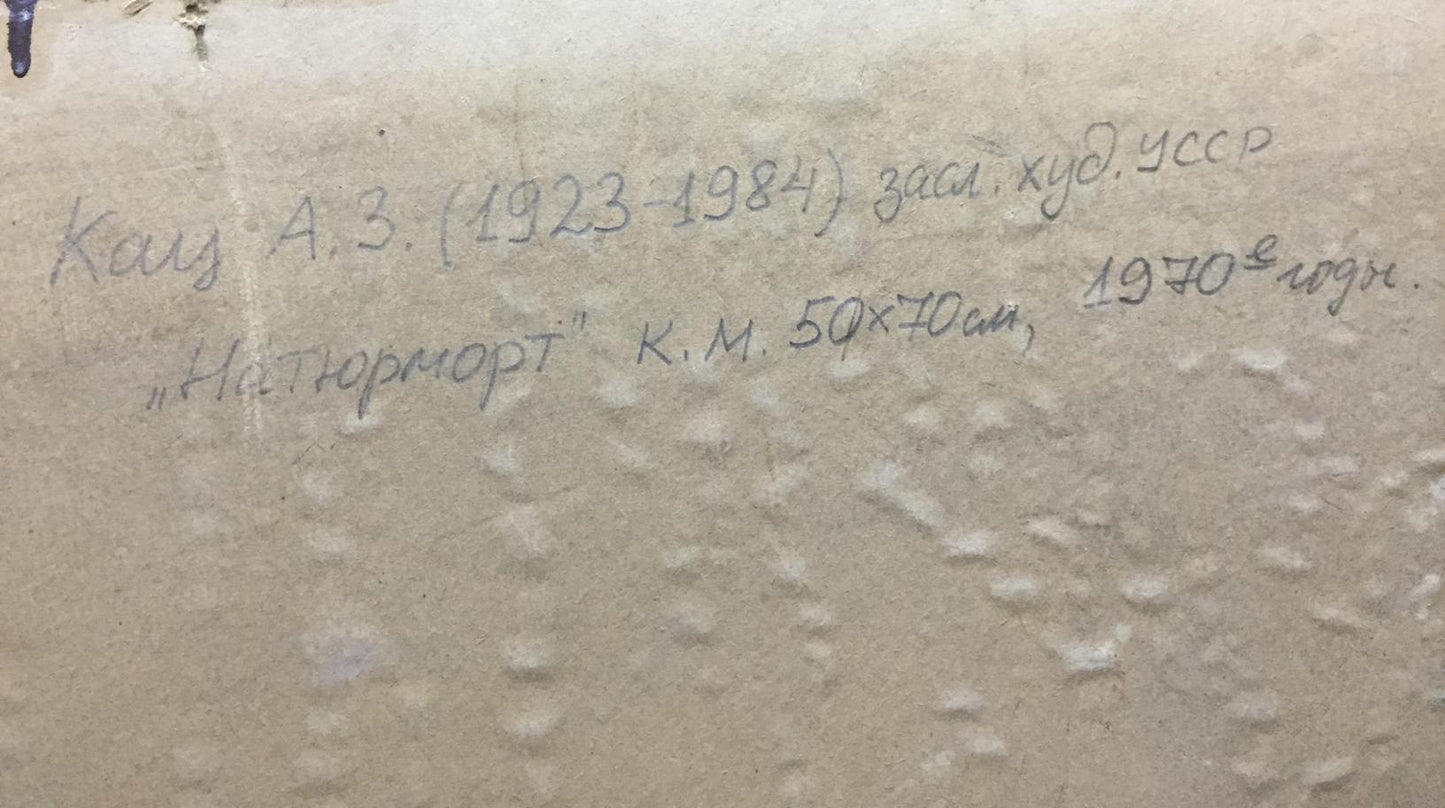 Кац А.З. (1923-1984) засл. худ. УССР
„Натюрморт" к.м. 50х70см, 1970е годы.